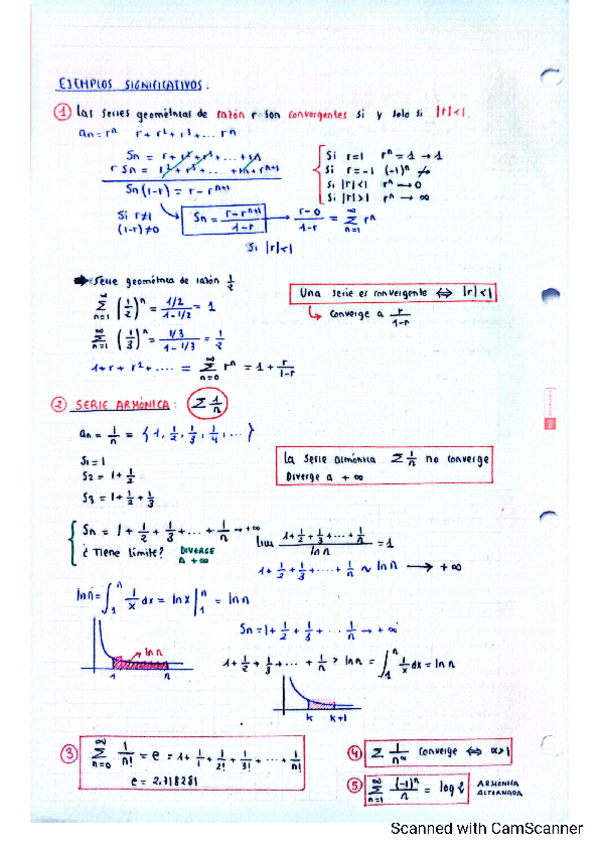 EJEMPLOS SIGNIFICATIVOS:
① Las series geométricas de razón r son convergentes si y solo si |r|<1.
an = rⁿ   r + r² + r³ + ... rⁿ
Sn = r + r² + r³ + ... + rn
r Sn = r² + r³ + ... + rn + rⁿ⁺¹
Sn (1-r) = r - rⁿ⁺¹
Si r=1   rⁿ = 1 → 1
Si r=-1   (-1)ⁿ ↛
Si |r|<1   rⁿ → 0
Si |r|>1   rⁿ → ∞
Si r≠1
(1-r)≠0
Sn = (r-rⁿ⁺¹)/(1-r) → (r-0)/(1-r) = ∞Σn=1 rⁿ
Si |r|<1
➡ Serie geométrica de razón 1/2
∞Σn=1 (1/2)ⁿ = (1/2)/(1-1/2) = 1
∞Σn=1 (1/3)ⁿ = (1/3)/(1-1/3) = 1/2
1 + r + r² + .... = ∞Σn=0 rⁿ = 1 + r/(1-r)
Una serie es convergente ⇔ |r|<1
↳ Converge a r/(1-r)
② SERIE ARMÓNICA: Σ 1/n
an = 1/n = {1, 1/2, 1/3, 1/4, ...}
S1 = 1
S2 = 1 + 1/2
S3 = 1 + 1/2 + 1/3
La serie armónica Σ 1/n no converge
Diverge a +∞
Sn = 1 + 1/2 + 1/3 + ... + 1/n → +∞
¿Tiene límite? DIVERGE
A +∞
lim (1 + 1/2 + 1/3 + ... + 1/n)/(ln n) = 1
1 + 1/2 + 1/3 + ... + 1/n ~ ln n → +∞
ln n = ∫₁ⁿ 1/x dx = ln x |₁ⁿ = ln n
Sn = 1 + 1/2 + 1/3 + ... 1/n → +∞
ln n
1   n
1 + 1/2 + 1/3 + ... + 1/n > ln n = ∫₁ⁿ 1/x dx = ln n
k   k+1
③ ∞Σn=0 1/n! = e = 1 + 1/1 + 1/2! + 1/3! + ... + 1/n!
e = 2,718281
④ Σ 1/n^α converge ⇔ α>1
⑤ ∞Σn=1 (-1)ⁿ/n = log 2   ARMÓNICA
ALTERNADA
Scanned with CamScanner